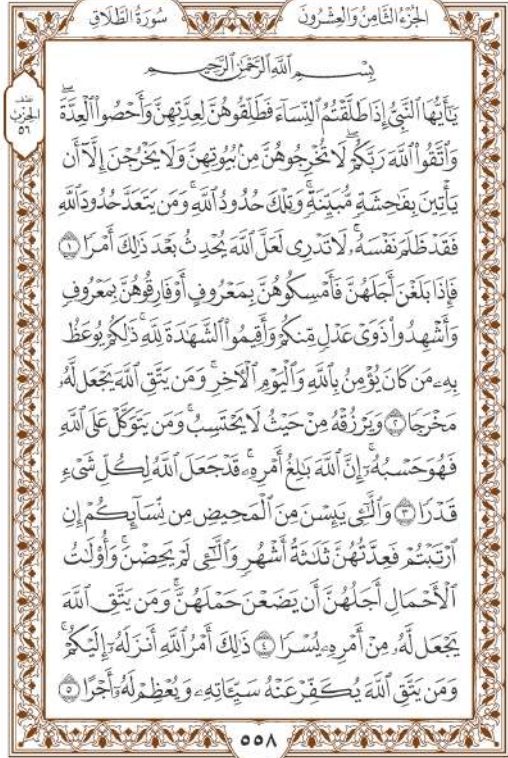 سُورَةُ الطَّلَاقِ
الجُزْءُ الثَّامِنُ وَالعِشْرُونَ
نصف
الحِزْبِ
٥٦
بِسْمِ ٱللَّهِ ٱلرَّحْمَٰنِ ٱلرَّحِيمِ
يَٰٓأَيُّهَا ٱلنَّبِيُّ إِذَا طَلَّقْتُمُ ٱلنِّسَآءَ فَطَلِّقُوهُنَّ لِعِدَّتِهِنَّ وَأَحْصُوا۟ ٱلْعِدَّةَۖ
وَٱتَّقُوا۟ ٱللَّهَ رَبَّكُمْۖ لَا تُخْرِجُوهُنَّ مِنۢ بُيُوتِهِنَّ وَلَا يَخْرُجْنَ إِلَّآ أَن
يَأْتِينَ بِفَٰحِشَةٍ مُّبَيِّنَةٍۚ وَتِلْكَ حُدُودُ ٱللَّهِۚ وَمَن يَتَعَدَّ حُدُودَ ٱللَّهِ
فَقَدْ ظَلَمَ نَفْسَهُۥۚ لَا تَدْرِى لَعَلَّ ٱللَّهَ يُحْدِثُ بَعْدَ ذَٰلِكَ أَمْرًا ١
فَإِذَا بَلَغْنَ أَجَلَهُنَّ فَأَمْسِكُوهُنَّ بِمَعْرُوفٍ أَوْ فَارِقُوهُنَّ بِمَعْرُوفٍ
وَأَشْهِدُوا۟ ذَوَىْ عَدْلٍ مِّنكُمْ وَأَقِيمُوا۟ ٱلشَّهَٰدَةَ لِلَّهِۚ ذَٰلِكُمْ يُوعَظُ
بِهِۦ مَن كَانَ يُؤْمِنُ بِٱللَّهِ وَٱلْيَوْمِ ٱلْءَاخِرِۚ وَمَن يَتَّقِ ٱللَّهَ يَجْعَل لَّهُۥ
مَخْرَجًا ٢ وَيَرْزُقْهُ مِنْ حَيْثُ لَا يَحْتَسِبُۚ وَمَن يَتَوَكَّلْ عَلَى ٱللَّهِ
فَهُوَ حَسْبُهُۥٓۚ إِنَّ ٱللَّهَ بَٰلِغُ أَمْرِهِۦۚ قَدْ جَعَلَ ٱللَّهُ لِكُلِّ شَىْءٍ
قَدْرًا ٣ وَٱلَّٰٓـِٔى يَئِسْنَ مِنَ ٱلْمَحِيضِ مِن نِّسَآئِكُمْ إِنِ
ٱرْتَبْتُمْ فَعِدَّتُهُنَّ ثَلَٰثَةُ أَشْهُرٍ وَٱلَّٰٓـِٔى لَمْ يَحِضْنَۚ وَأُو۟لَٰتُ
ٱلْأَحْمَالِ أَجَلُهُنَّ أَن يَضَعْنَ حَمْلَهُنَّۚ وَمَن يَتَّقِ ٱللَّهَ
يَجْعَل لَّهُۥ مِنْ أَمْرِهِۦ يُسْرًا ٤ ذَٰلِكَ أَمْرُ ٱللَّهِ أَنزَلَهُۥٓ إِلَيْكُمْۚ
وَمَن يَتَّقِ ٱللَّهَ يُكَفِّرْ عَنْهُ سَيِّـَٔاتِهِۦ وَيُعْظِمْ لَهُۥٓ أَجْرًا ٥
٥٥٨